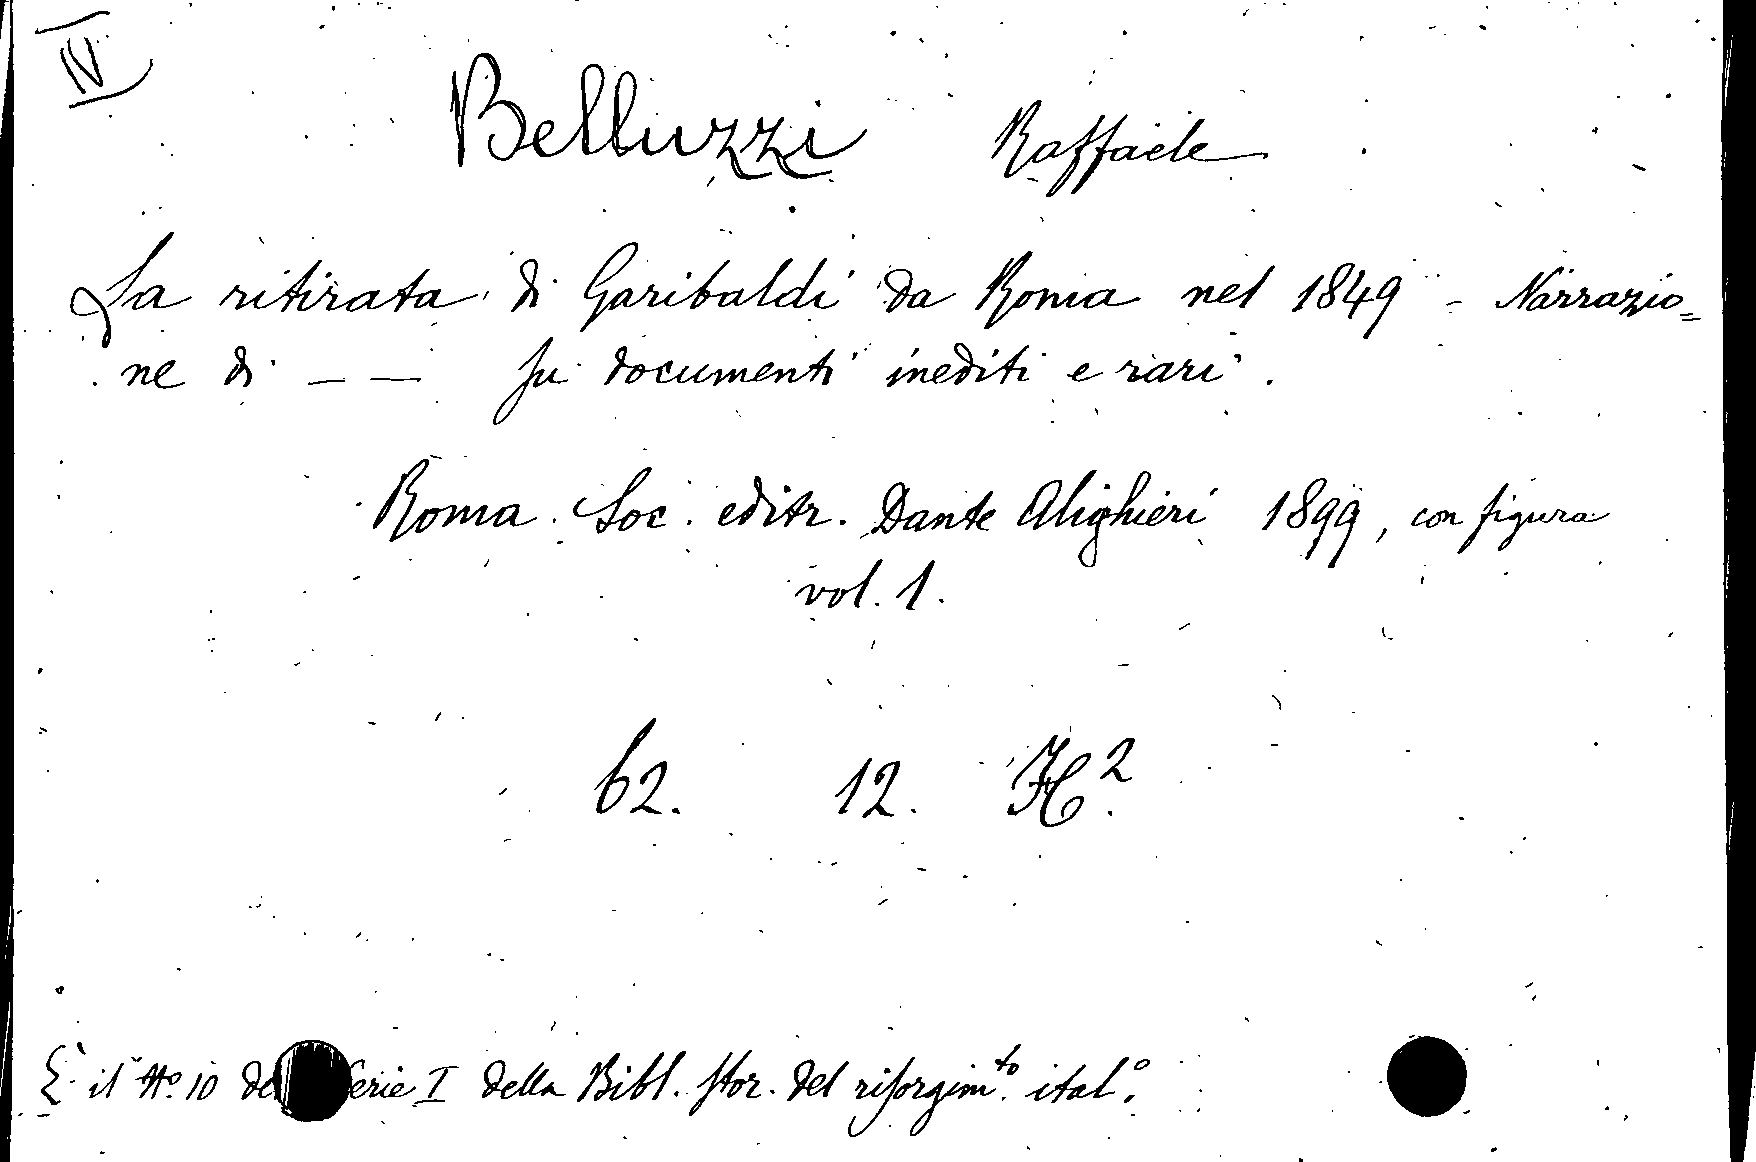 IV
Belluzzi Raffaele
La ritirata di Garibaldi da Roma nel 1849 - Narrazio=
ne di — — su documenti inediti e rari.
Roma. Soc. editr. Dante Alighieri 1899, con figura
vol. 1.
62. 12. H².
È il No. 10 de Serie I della Bibl. stor. del risorgim.to ital.o